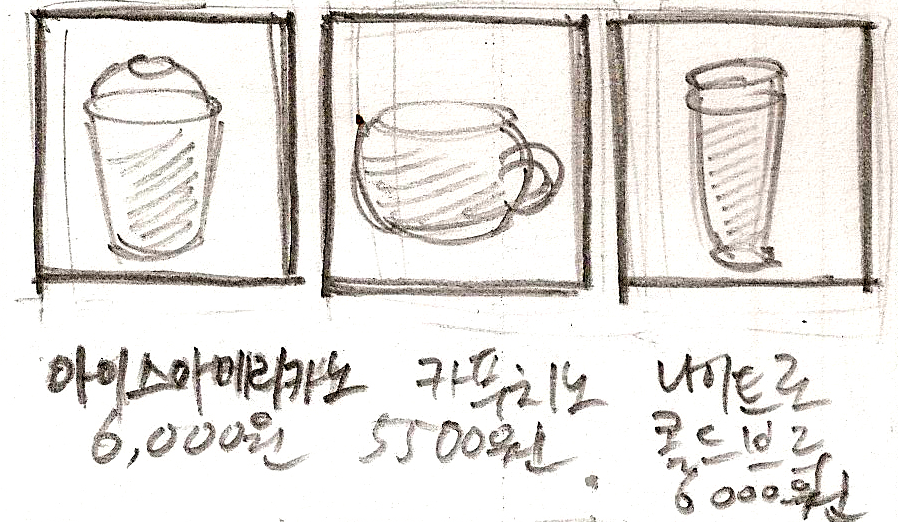 아이스아메리카노
6,000원
카푸치노
5500원
나이트로
콜드브루
6000원